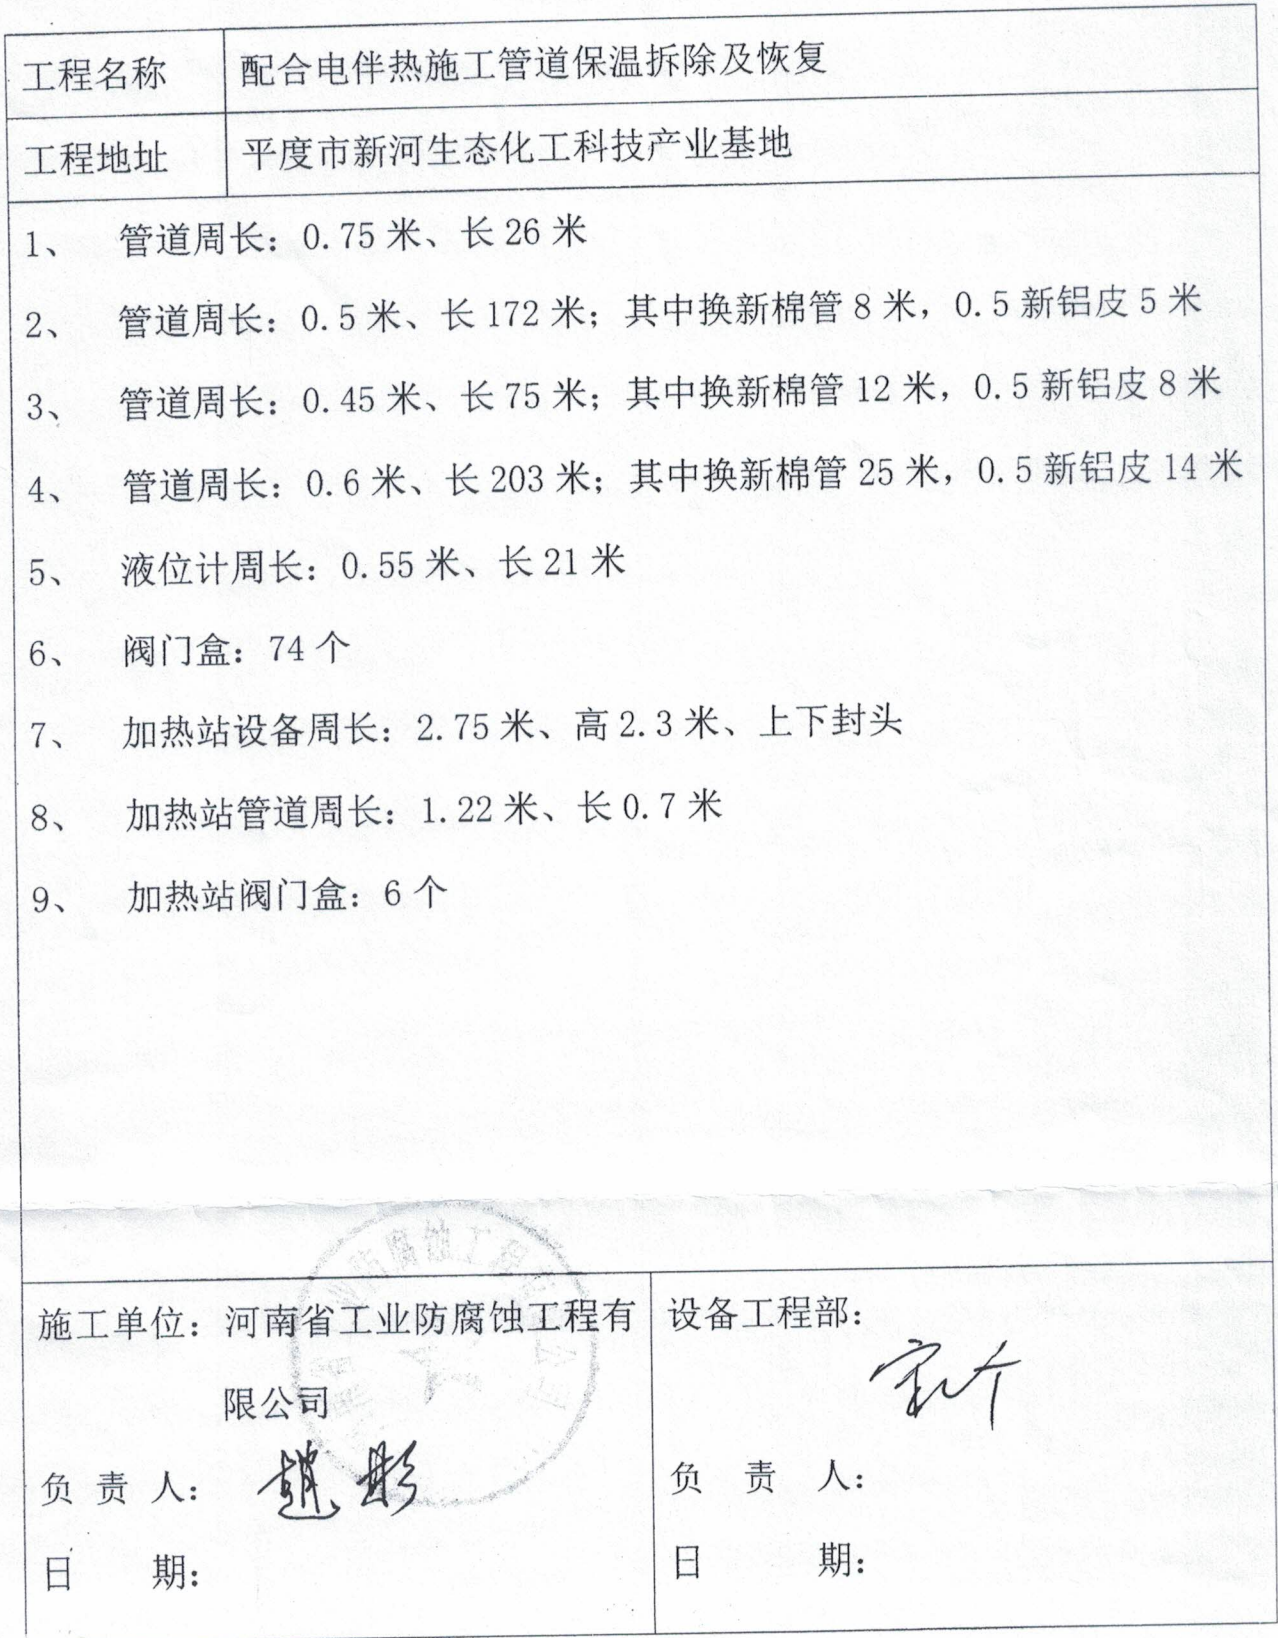 工程名称 配合电伴热施工管道保温拆除及恢复
工程地址 平度市新河生态化工科技产业基地
1、 管道周长：0.75米、长26米
2、 管道周长：0.5米、长172米；其中换新棉管8米，0.5新铝皮5米
3、 管道周长：0.45米、长75米；其中换新棉管12米，0.5新铝皮8米
4、 管道周长：0.6米、长203米；其中换新棉管25米，0.5新铝皮14米
5、 液位计周长：0.55米、长21米
6、 阀门盒：74个
7、 加热站设备周长：2.75米、高2.3米、上下封头
8、 加热站管道周长：1.22米、长0.7米
9、 加热站阀门盒：6个
施工单位：河南省工业防腐蚀工程有
限公司
负责人：趙彬
日期：
设备工程部：
负责人：
日期：